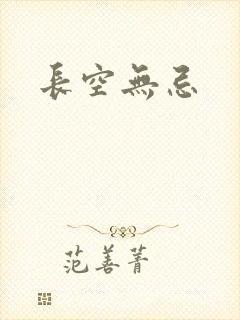 長空無忌
范善菁